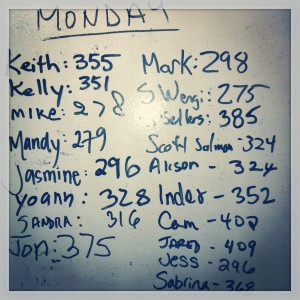 MONDAY
Keith: 355
Kelly: 351
mike: 278
Mandy: 279
Jasmine: 296
Yoann: 328
SANDRA: 316
Jon: 375
Mark: 298
S Weng: 275
Sellers: 385
Scott Salmon - 324
Alison - 324
Inder - 352
Cam - 400
JARED - 409
Jess - 296
Sabrina - 368